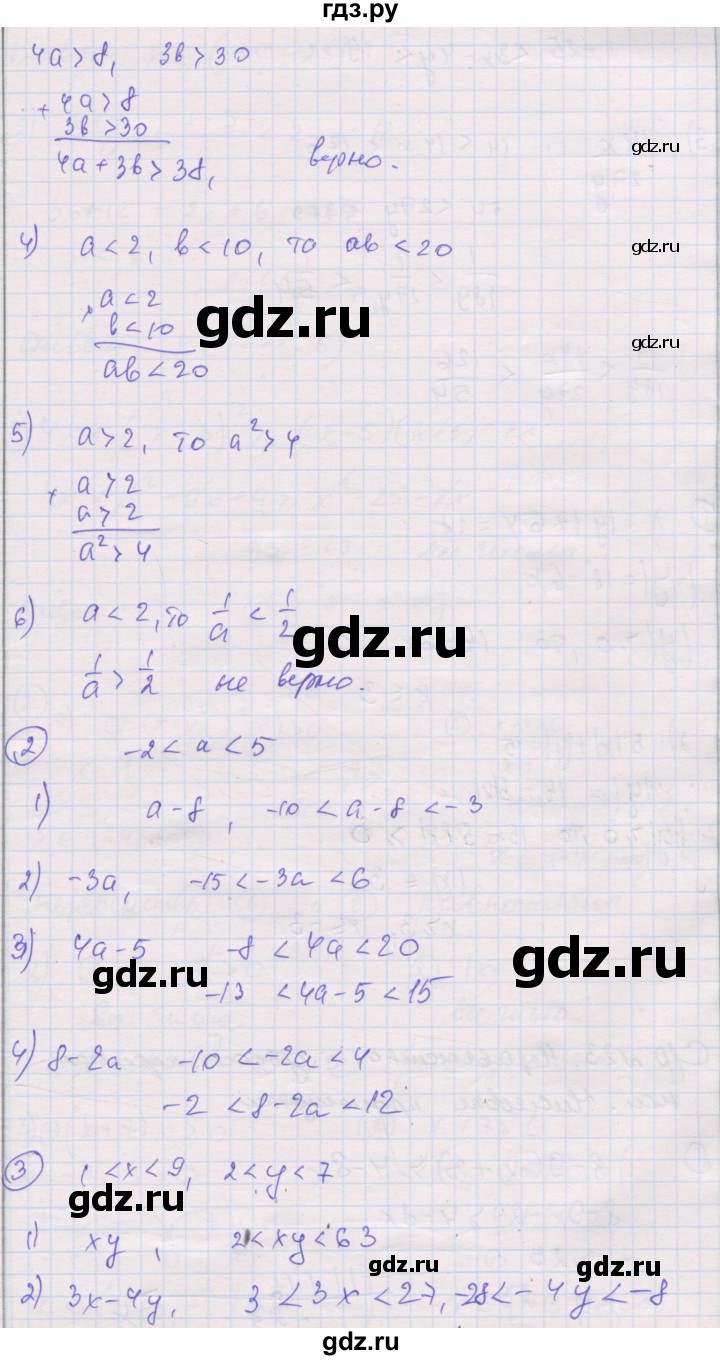 гдз.ру
4a > 8, 3b > 30
+ 4a > 8
3b > 30
4a + 3b > 38, верно.
gdz.ru
4) a < 2, b < 10, то ab < 20
gdz.ru
× a < 2
b < 10
gdz.ru
gdz.ru
ab < 20
5) a > 2, то a² > 4
× a > 2
a > 2
a² > 4
6) a < 2, то 1/a < 1/2
gdz.ru
1/a > 1/2 не верно.
2 -2 < a < 5
1) a - 8, -10 < a - 8 < -3
2) -3a, -15 < -3a < 6
3) 4a - 5 -8 < 4a < 20
gdz.ru
gdz.ru
-13 < 4a - 5 < 15
4) 8 - 2a -10 < -2a < 4
-2 < 8 - 2a < 12
3 1 < x < 9, 2 < y < 7
gdz.ru
1) xy, 2 < xy < 63
gdz.ru
gdz.ru
2) 3x - 4y, 3 < 3x < 27, -28 < -4y < -8
gdz.ru